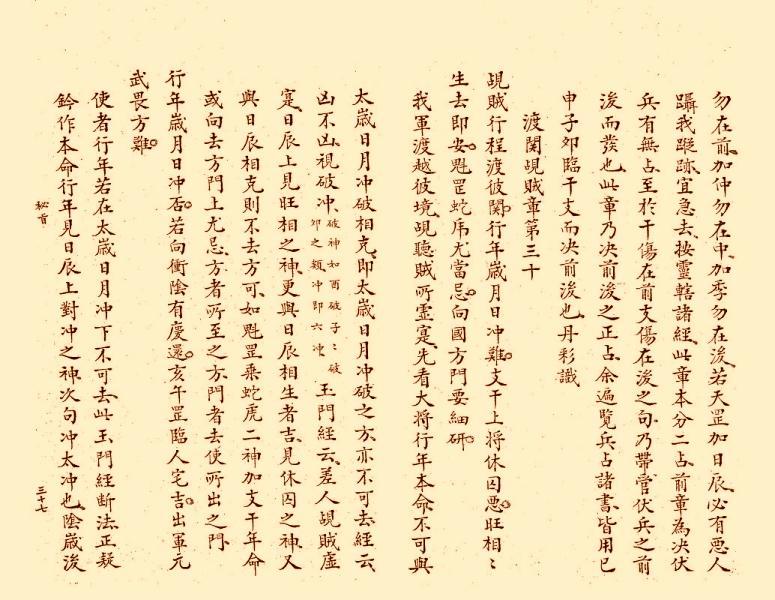 勿在前加仲勿在中加季勿在後若天罡加日辰必有惡人
躡我蹤跡宜急去按靈轄諸經此章本分二占前章為决伏
兵有無占至於干傷在前支傷在後之句乃帶管伏兵之前
後而發也此章乃决前後之正占余遍覽兵占諸書皆用巳
申子卯臨干支而决前後也丹彩識
渡関覘賊章第三十
覘賊行程渡彼関行年歲月日冲難支干上將休囚惡旺相〻
生去即安魁罡蛇虎尤當忌向國方門要細研
我軍渡越彼境覘聽賊所虛寔先看大將行年本命不可與
太歲日月冲破相克即太歲日月冲破之方亦不可去經云
凶不凶視破冲破神如酉破子〻破卯之類冲即六冲玉門經云差人覘賊虛
寔日辰上見旺相之神更與日辰相生者吉見休囚之神又
與日辰相克則不去方可如魁罡乘蛇虎二神加支干年命
或向去方門上尤忌方者所至之方門者去使所出之門
行年歲月日冲否若向衝陰有慶還亥午罡臨人宅吉出軍元
武畏方難
使者行年若在太歲日月冲下不可去此玉門經斷法正疑
鈐作本命行年見日辰上對冲之神次句冲太冲也陰歲後
秘旨
三十七